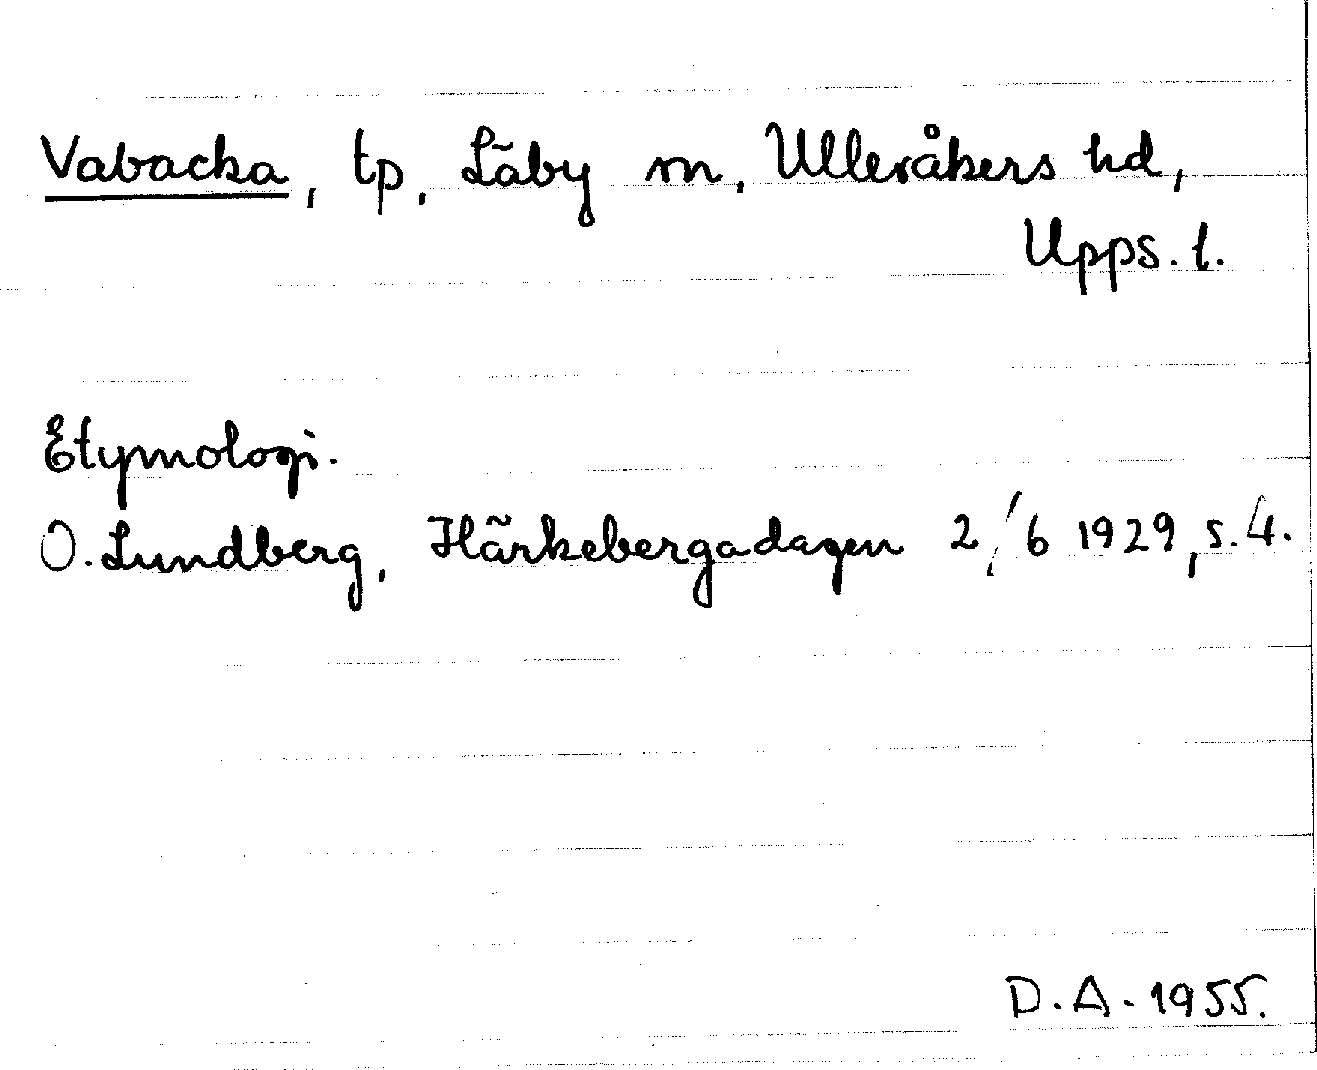 Vabacka, tp, Läby sn, Ulleråkers hd,
Upps. l.
Etymologi.
O. Lundberg, Härkebergadagen 2/6 1929, s. 4.
D.A. 1955.